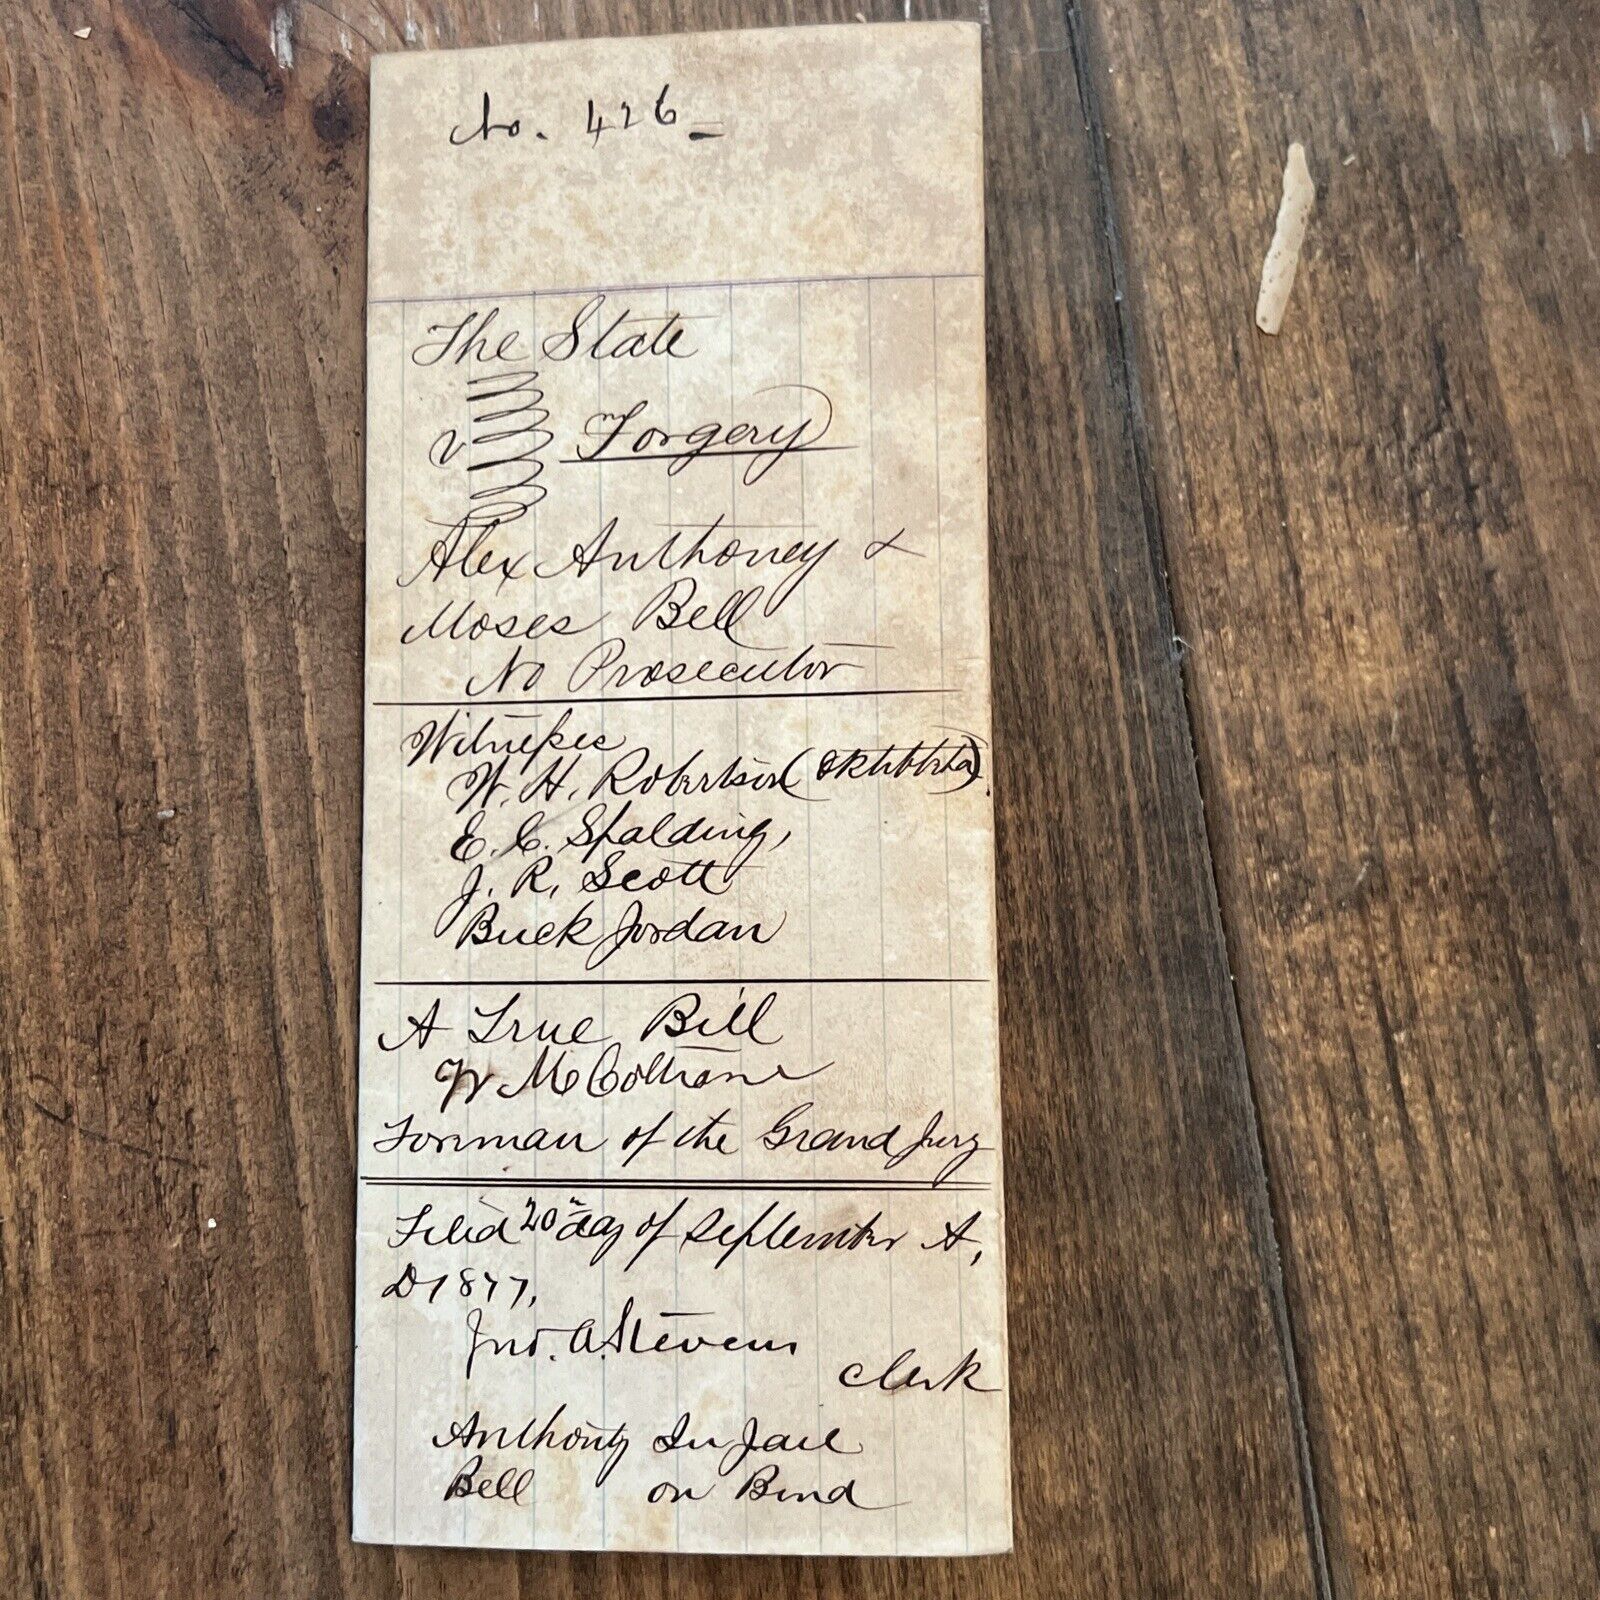 No. 426
The State
v Forgery
Alex Anthoney &
Moses Bell
No Prosecutor
Witnesses
W. H. Robertson (Oktibbeha).
E. C. Spalding,
J. R. Scott
Buck Jordan
A True Bill
W M Coltrane
Foreman of the Grand Jury
Filed 20th day of September A,
D 1877,
Jno. A. Stevens
Clerk
Anthony In Jail
Bell on Bond